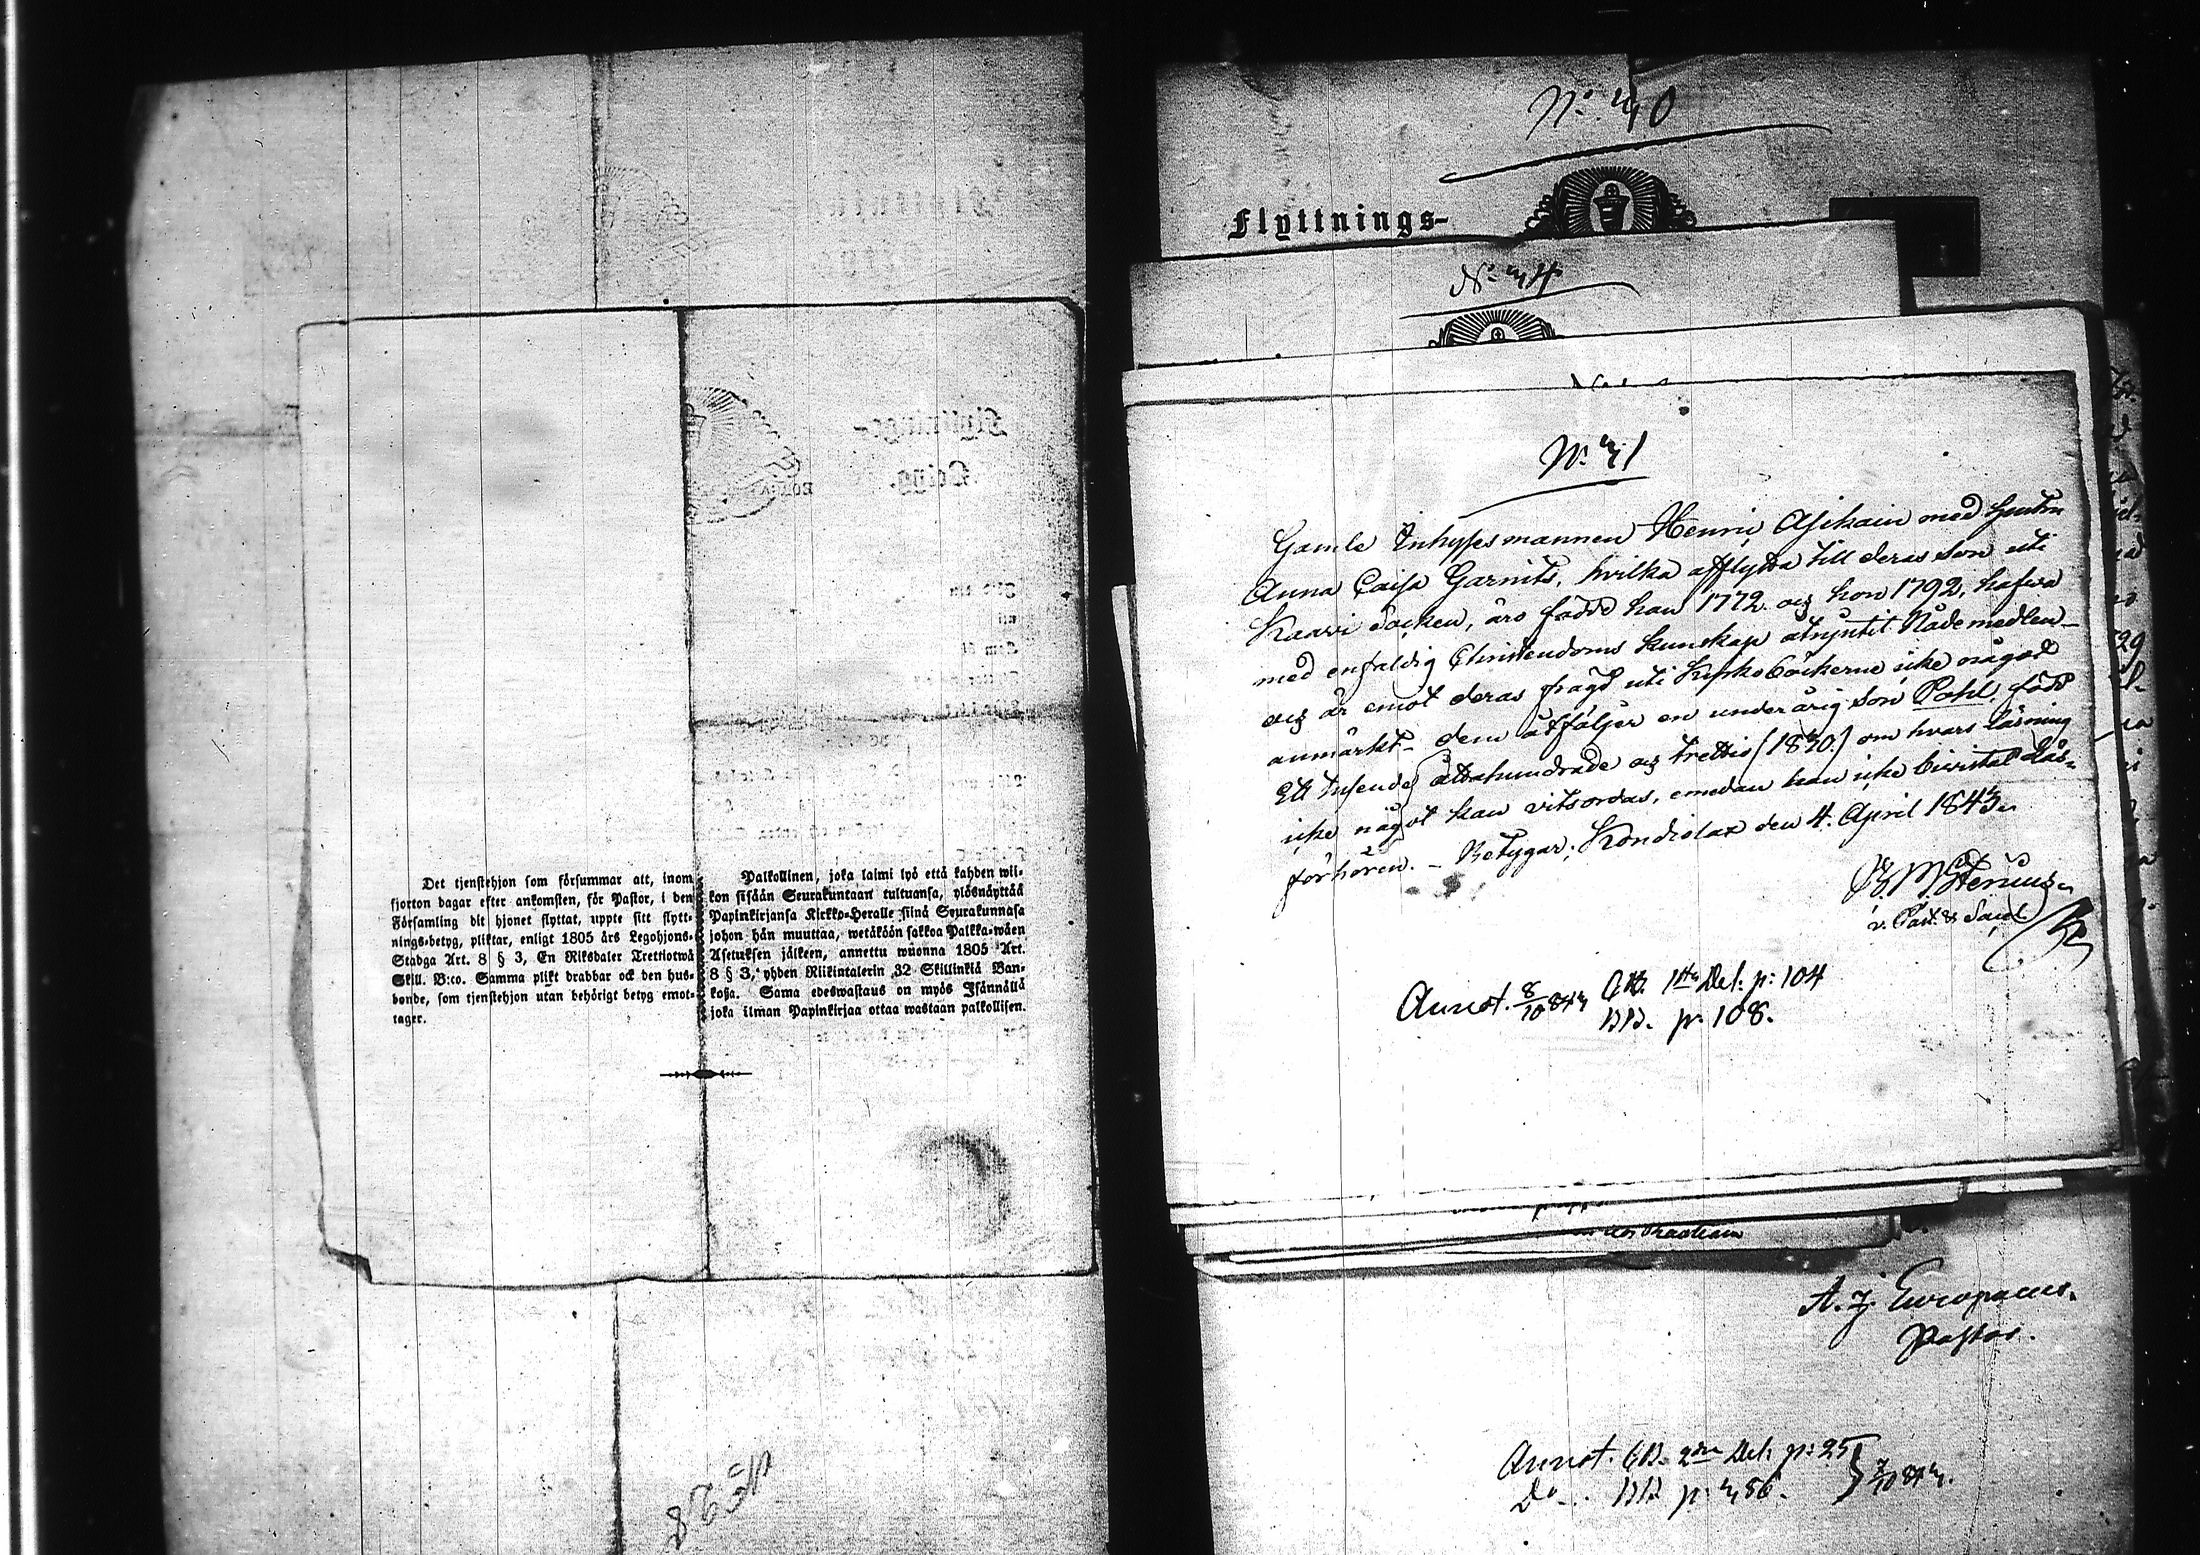 Det tjenstehjon som försummar att, inom
fjorton dagar efter ankomsten, för Pastor, i den
Församling dit hjonet flyttat, uppte sitt flytt-
nings-betyg, pliktar, enligt 1805 års Legohjons-
Stadga Art. 8 § 3, En Riksdaler Trettiotwå
Skill. B:co. Samma plikt drabbar ock den hus-
bonde, som tjenstehjon utan behörigt betyg emot-
tager.
Palkollinen, joka laimi lyö että kahden wii-
kon sisään Seurakuntaan tultuansa, ylösnäyttää
Papinkirjansa Kirkko-Heralle siinä Seurakunnasa
johon hän muuttaa, wetäköön sakkoa Palkka-wäen
Asetuksen jälkeen, annettu wuonna 1805 Art.
8 § 3, yhden Riikintalerin 32 Skillinkiä Ban-
kosa. Sama edeswastaus on myös Isännällä
joka ilman Papinkirjaa ottaa wastaan palkollisen.
No 40
Flyttnings-
No 
No 41
Gamle Inhysesmannen Henric Asikain med hustru
Anna Caisa Garnits, hvilka afflytta till deras son uti
Kaavi Socken, äro födde han 1772 och hon 1792, hafva
med enfaldig Christendoms kunskap åtnjutit Nådemedlen
och är emot deras frägd uti Kyrkoböckerne icke något
anmärkt. dem åtföljer en underårig son Pohl, född
Ett tusende åttahundrade och trettio (1830.) om hvars läsning
icke något kan vitsordas, emedan han icke bivistat Läs-
förhören. - Betygar; Kondiolax den 4. April 1843.
v. Past.
Annot. 8/10 843 CB. 1sta Del: p: 104
BB. p. 108.
A. J. Europaeus.
Pastor.
Annot. CB. 2dra Del. p: 25
Do... BB p: